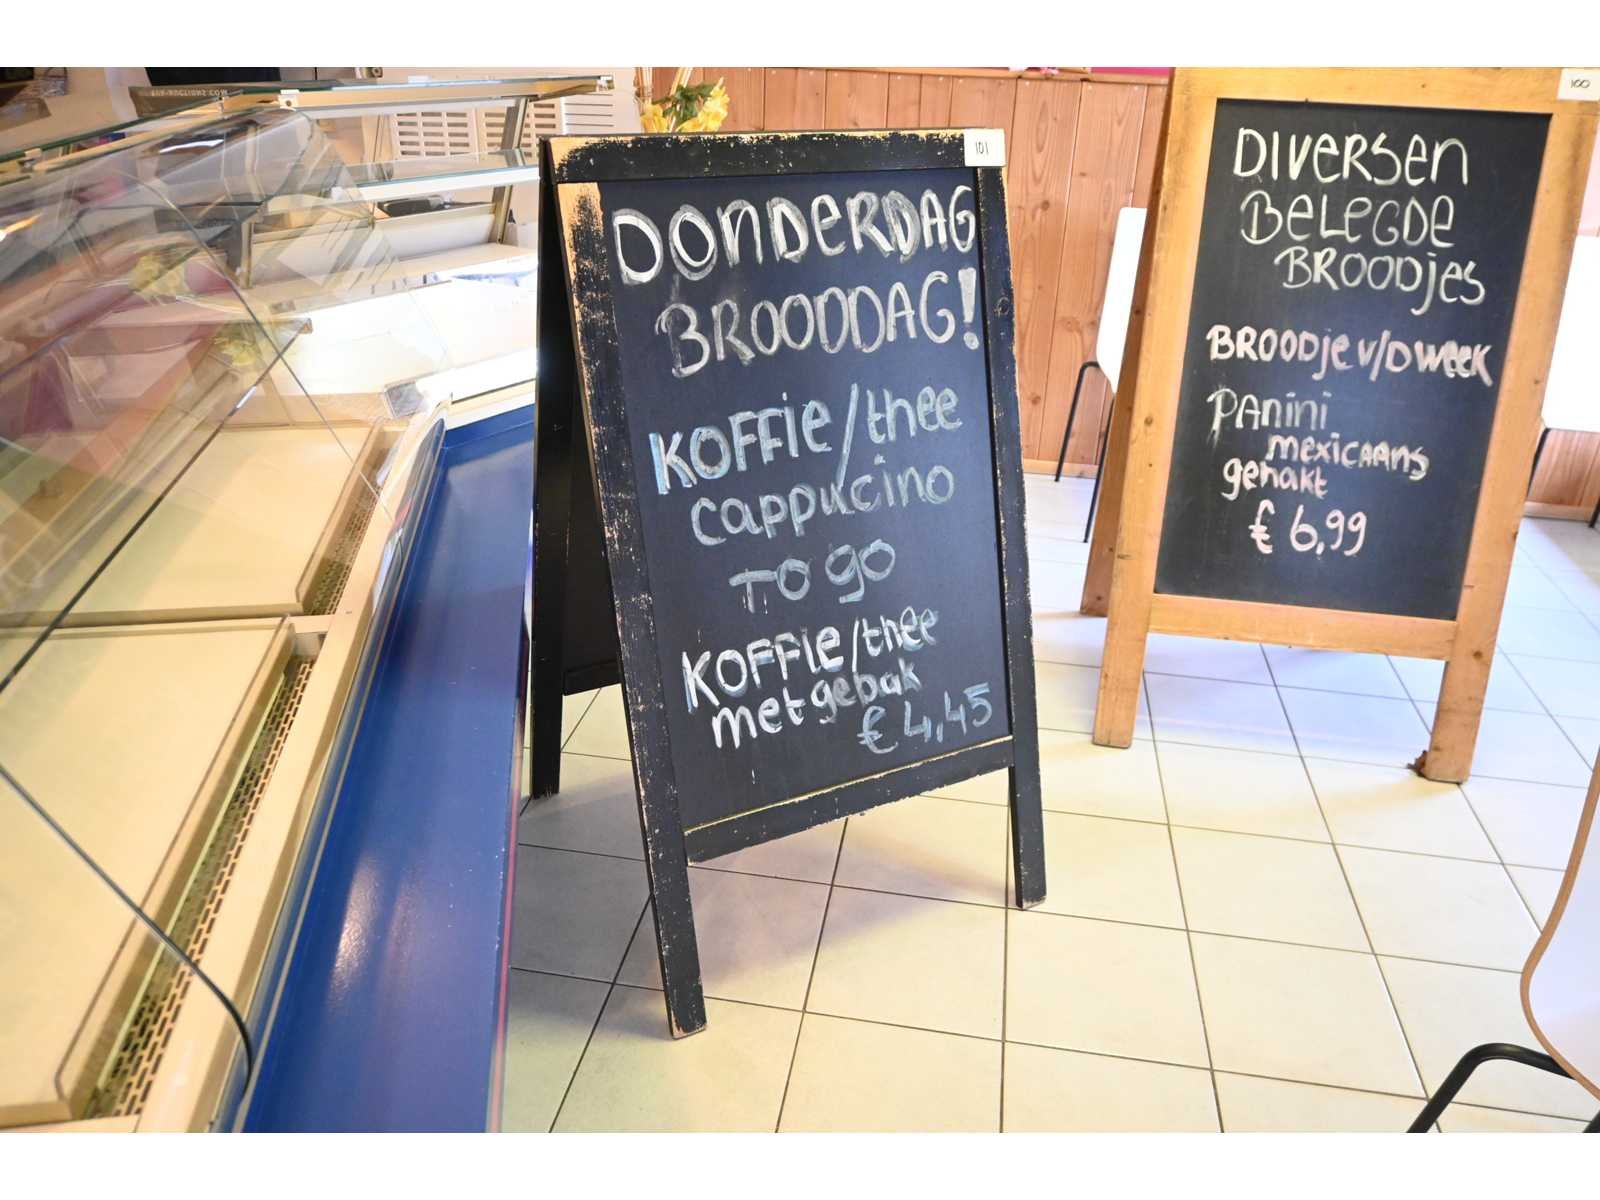 101
DONDERDAG
BROODDAG!
KOFFIE/thee
cappucino
TO GO
KOFFIE/thee
met gebak
€ 4,45
100
DIVERSEN
BELEGDE
BROODJES
BROODJE V/D WEEK
PANINI
mexicaans
gehakt
€ 6,99